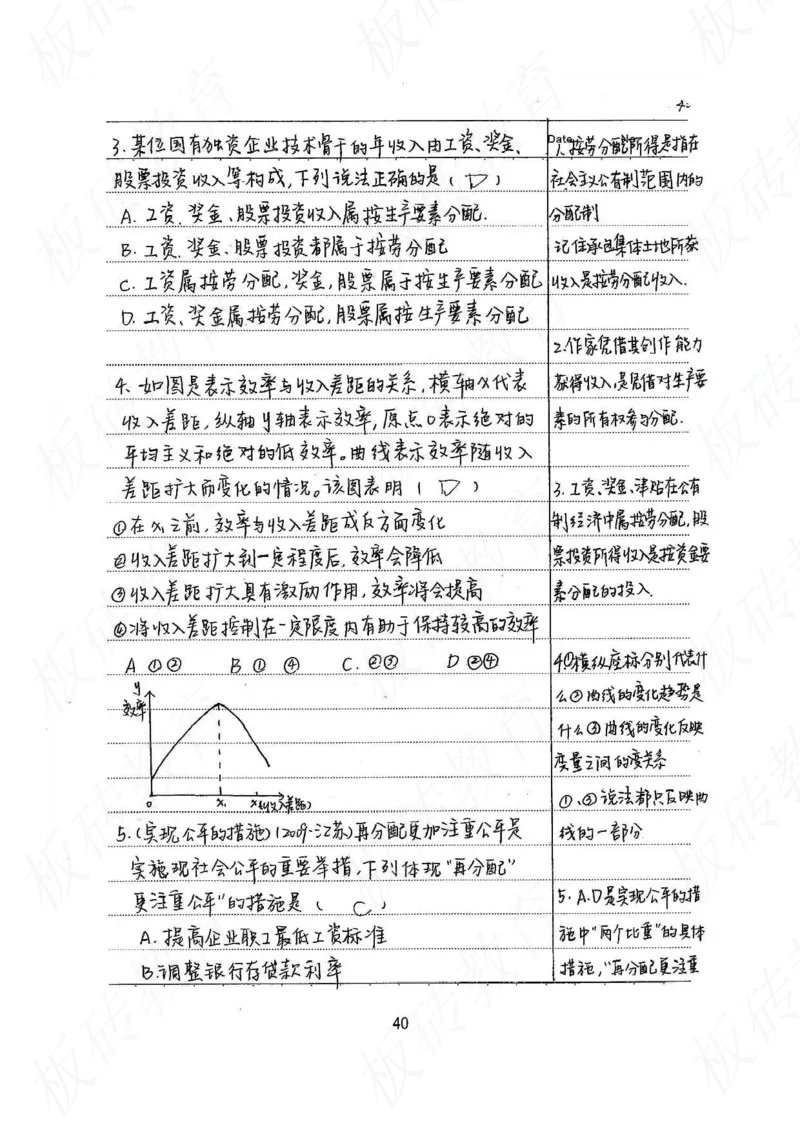 4:
3.某位国有独资企业技术骨干的年收入由工资、奖金、
股票投资收入等构成,下列说法正确的是( D )
A.工资、奖金、股票投资收入属按生产要素分配.
B.工资、奖金、股票投资都属于按劳分配
C.工资属按劳分配,奖金,股票属于按生产要素分配
D.工资、奖金属按劳分配,股票属按生产要素分配
4、如图是表示效率与收入差距的关系,横轴x代表
收入差距,纵轴y轴表示效率,原点0表示绝对的
平均主义和绝对的低效率。曲线表示效率随收入
差距扩大而变化的情况。该图表明( D )
①在x₁之前,效率与收入差距成反方面变化
②收入差距扩大到一定程度后,效率会降低
③收入差距扩大具有激励作用,效率将会提高
④将收入差距控制在一定限度内有助于保持较高的效率
A ①② B ① ④ C.②③ D ②④
y
效率
0 x₁ x(收入差距)
5.(实现公平的措施)(2009·江苏)再分配更加注重公平是
实施现社会公平的重要举措,下列体现“再分配”
更注重公平”的措施是( C )
A.提高企业职工最低工资标准
B.调整银行存贷款利率
Date
1.按劳分配所得是指在
社会主义公有制范围内的
分配制
记住承包集体土地所获
收入是按劳分配收入.
2.作家凭借其创作能力
获得收入,是凭借对生产要
素的所有权参与分配.
3.工资、奖金、津贴在公有
制经济中属按劳分配,股
票投资所得收入是按资金要
素分配的投入.
4①横纵座标分别代表什
么②曲线的变化趋势是
什么③曲线的变化反映
变量之间的变关系
①、③说法都只反映曲
线的一部分
5.A.D是实现公平的措
施中“两个比重”的具体
措施,“再分配更注重
40
板砖教育